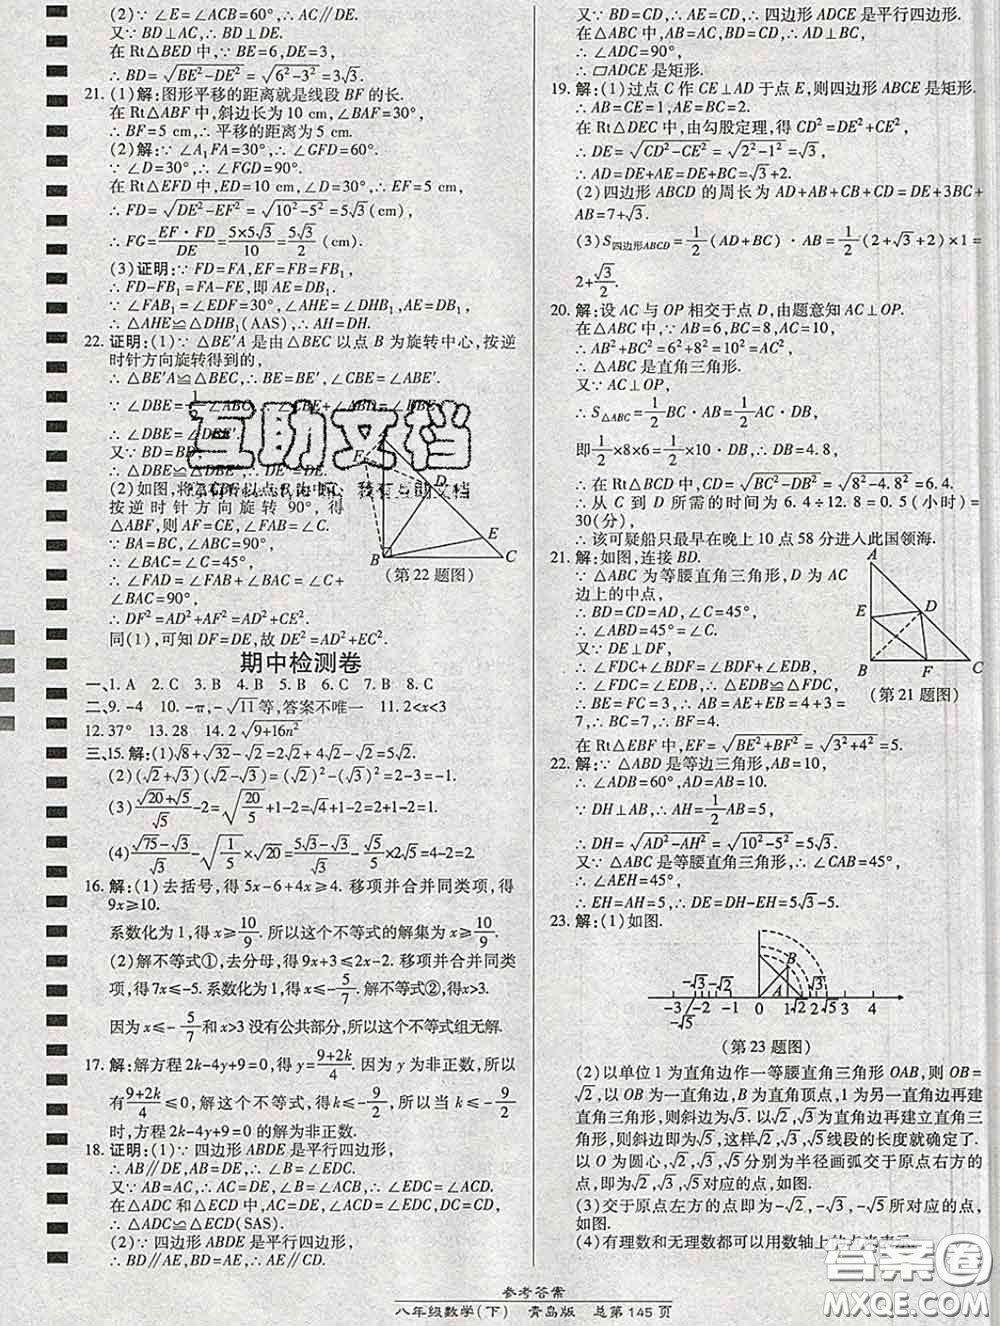 (2)∵∠E=∠ACB=60°,∴AC∥DE.
又∵BD⊥AC,∴BD⊥DE.
在 Rt△BED 中,∵BE=6,DE=3,
∴BD=√(BE²-DE²)=√(6²-3²)=3√3.
21. (1)解:图形平移的距离就是线段 BF 的长.
在 Rt△ABF 中,斜边长为 10 cm,∠BAF=30°,
∴BF=5 cm,∴平移的距离为 5 cm.
(2)解:∵∠A₁FA=30°,∴∠GFD=60°.
∵∠D=30°,∴∠FGD=90°.
在 Rt△EFD 中,ED=10 cm,∠D=30°,∴EF=5 cm.
∴FD=√(DE²-EF²)=√(10²-5²)=5√3(cm).
∴FG=EF·FD/DE=5×5√3/10=5√3/2(cm).
(3)证明:∵FD=FA,EF=FB=FB₁,
∴FD-FB₁=FA-EF,即 AE=DB₁.
∵∠FAB₁=∠EDF=30°,∠AHE=∠DHB₁,
∴△AHE≌△DHB₁(AAS),∴AH=DH.
22. 证明:(1)∵△BE′A 是由△BEC 以点 B 为旋转中心,按逆
时针方向旋转得到的,
∴△BE′A≌△BEC,∴BE=BE′,∠CBE=∠ABE′.
∵∠DBE=1/2∠ABC
∴∠DBE=∠DBE′.
又∵BD=BD
∴△DBE≌△DBE′,∴DE′=DE.
(2)如图,将
按逆时针方向旋转 90°,得
△ABF,则 AF=CE,∠FAB=∠C.
∵BA=BC,∠ABC=90°,
∴∠BAC=∠C=45°,
∴∠DAF=∠FAB+∠BAC=∠C+
∠BAC=90°,
∴DF²=AD²+AF²=AD²+CE².
同(1),可知 DF=DE,故 DE²=AD²+EC².
F D E B C
(第 22 题图)
期中检测卷
一、1. A 2. C 3. B 4. B 5. B 6. C 7. B 8. C
二、9. -4 10. -π,-√11等,答案不唯一 11. 2<x<3
12. 37° 13. 28 14. 2√(9+16n²)
三、15. 解:(1)√8+√32-√2=2√2+4√2-√2=5√2.
(2)(√2+√3)(√2-√3)=(√2)²-(√3)²=2-3=-1.
(3)(√20+√5)/√5-2=√(20/5)+1-2=√4+1-2=2+1-2=1.
(4)(√75-√3)/√3-√(1/5)×√20=(5√3-√3)/√3-√5/5×2√5=4-2=2.
16. 解:(1)去括号,得 5x-6+4x≥4. 移项并合并同类项,得
9x≥10.
系数化为 1,得 x≥10/9. 所以这个不等式的解集为 x≥10/9.
(2)解不等式①,去分母,得 9x+3≤2x-2. 移项并合并同类
项,得 7x≤-5. 系数化为 1,得 x≤-5/7. 解不等式②,得 x>3.
因为 x≤-5/7 和 x>3 没有公共部分,所以这个不等式组无解.
17. 解:解方程 2k-4y+9=0,得 y=(9+2k)/4. 因为 y 为非正数,所以
有(9+2k)/4≤0,解这个不等式,得 k≤-9/2. 所以当 k≤-9/2
时,方程 2k-4y+9=0 的解为非正数.
18. 证明:(1)∵四边形 ABDE 是平行四边形,
∴AB∥DE,AB=DE,∴∠B=∠EDC.
又∵AB=AC,∴AC=DE,∠B=∠ACB,∴∠EDC=∠ACD.
在△ADC 和△ECD 中,AC=DE,∠ACD=∠EDC,DC=CD,
∴△ADC≌△ECD(SAS).
(2)∵四边形 ABDE 是平行四边形,
∴BD∥AE,BD=AE,∴AE∥CD.
又∵BD=CD,∴AE=CD,∴四边形 ADCE 是平行四边形.
在△ABC 中,AB=AC,BD=CD,∴AD⊥BC,
∴∠ADC=90°,
∴▱ADCE 是矩形.
19. 解:(1)过点 C 作 CE⊥AD 于点 E,则四边形 ABCE 是矩形.
∴AB=CE=1,AE=BC=2.
在 Rt△DEC 中,由勾股定理,得 CD²=DE²+CE²,
∴DE=√(CD²-CE²)=√(2²-1²)=√3,
∴AD=DE+AE=DE+BC=√3+2.
(2)四边形 ABCD 的周长为 AD+AB+CB+CD=DE+3BC+
AB=7+√3.
(3)S四边形ABCD=1/2(AD+BC)·AB=1/2(2+√3+2)×1=
2+√3/2.
20. 解:设 AC 与 OP 相交于点 D,由题意知 AC⊥OP.
在△ABC 中,∵AB=6,BC=8,AC=10,
∴AB²+BC²=6²+8²=10²=AC²,
∴△ABC 是直角三角形.
又∵AC⊥OP,
∴S△ABC=1/2 BC·AB=1/2 BD·AC.
即1/2×8×6=1/2×10·DB,∴DB=4.8,
∴在 Rt△BCD 中,CD=√(BC²-BD²)=√(8²-4.8²)=6.4.
∴从 C 到 D 所需的时间为 6.4÷12.8=0.5(小时)=
30(分),
∴该可疑船只最早在晚上 10 点 58 分进入此国领海.
21. 解:如图,连接 BD.
∵△ABC 为等腰直角三角形,D 为 AC
边上的中点,
∴BD=CD=AD,∠C=45°,
∴∠ABD=45°=∠C.
又∵DE⊥DF,
∴∠FDC+∠BDF=∠EDB+∠BDF,
∴∠FDC=∠EDB,∴△EDB≌△FDC,
∴BE=FC=3,∴AB=AE+EB=4+3=
7,∴BC=7,∴BF=4.
在 Rt△EBF 中,EF=√(BE²+BF²)=√(3²+4²)=5.
A E D B F C
(第 21 题图)
22. 解:∵△ABD 是等边三角形,AB=10,
∴∠ADB=60°,AD=AB=10.
∵DH⊥AB,∴AH=1/2 AB=5,
∴DH=√(AD²-AH²)=√(10²-5²)=5√3.
又∵△ABC 是等腰直角三角形,∴∠CAB=45°,
∴∠AEH=45°,
∴EH=AH=5,∴DE=DH-EH=5√3-5.
23. 解:(1)如图.
B A
-√3 -√2 √3 √5
-3 -2 -1 0 1 √2 2 3 4
-√5
(第 23 题图)
(2)以单位 1 为直角边作一等腰直角三角形 OAB,则 OB=
√2,以√2为一直角边,B 为直角顶点,1 为另一直角边再建
直角三角形,则斜边为√3. 以√2和√3为直角边再建立直角三
角形,所以斜边为√5,这样√2,√3,√5线段的长度就确定了.
以 O 为圆心,√2,√3,√5分别为半径画弧交于原点右方的
点,即为表示√2,√3,√5对应的点.
(3)交于原点左方的点即为-√2,-√3,-√5所对应的点,
如图.
(4)有理数和无理数都可以用数轴上的点来表示.
互助文档
参考答案
八年级数学(下) 青岛版 总第 145 页
答案圈
MXQE.COM